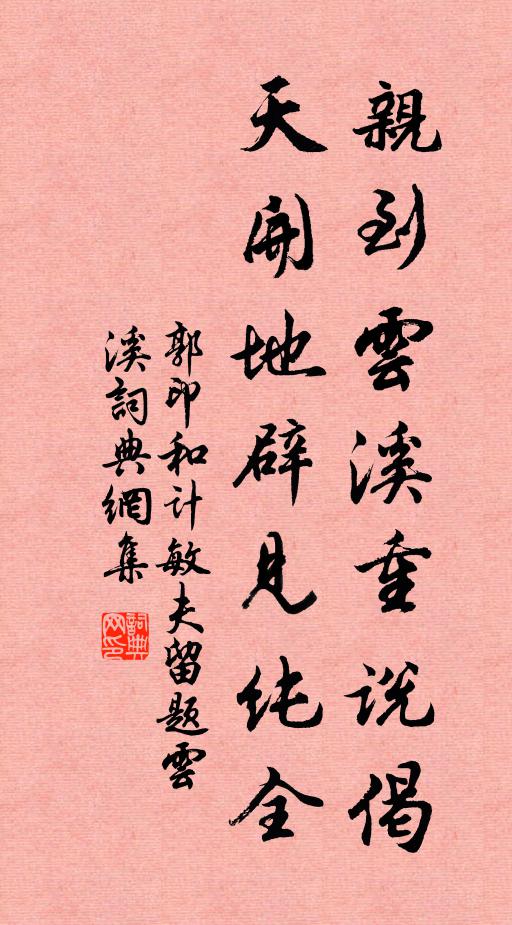 親到雲溪重说偈
天開地辟見纯全
郭印和计敏夫留题雲
溪詞典網集
詞典网印